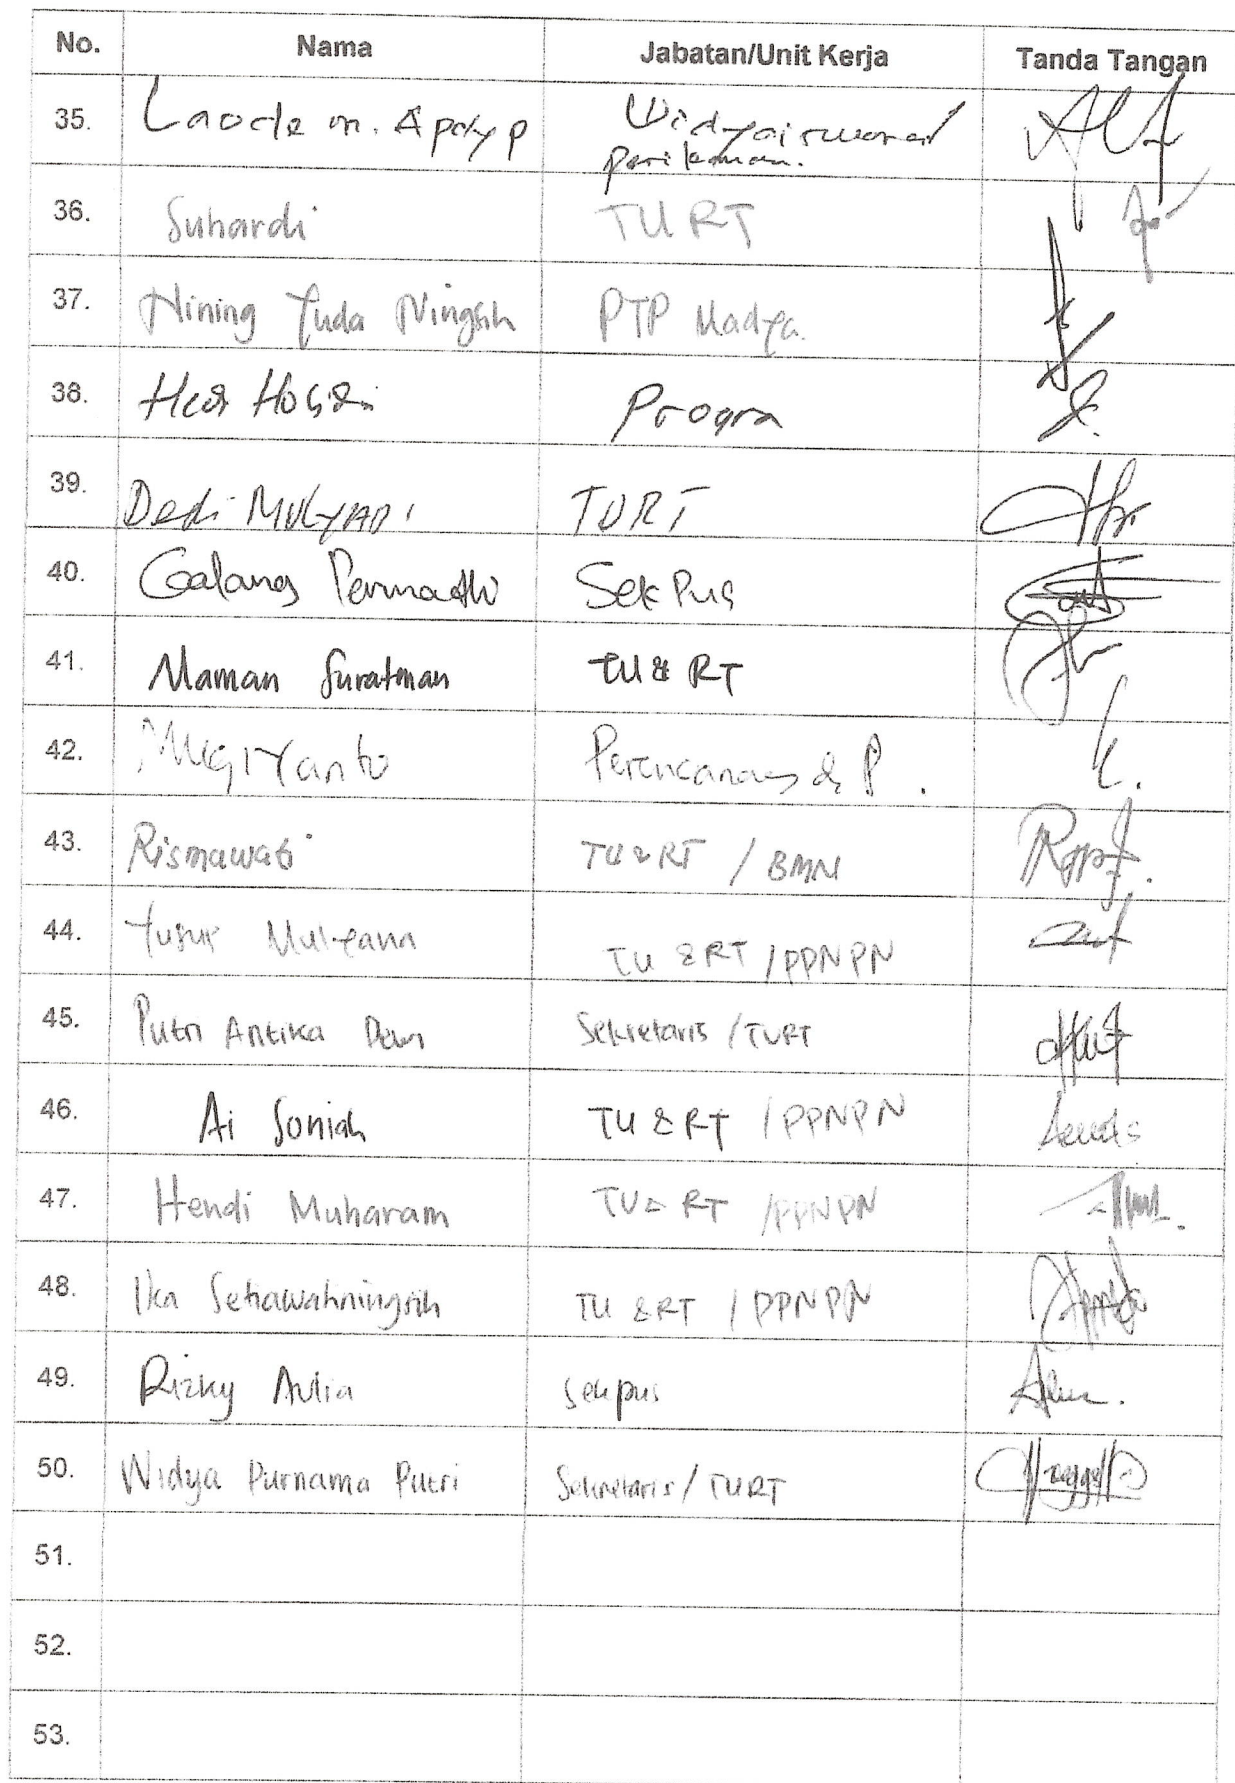 No. Nama Jabatan/Unit Kerja Tanda Tangan
35. Laode m. Widyaiswara
Perikanan.
36. Suhardi TURT
37. Nining Yuda Ningsih PTP Madya.
38. Progra
39. Dedi MULYADI TURT
40. Galang Permadhi SekPus
41. Maman Suratman TU & RT
42. Mugiyanto Perencanaan & P.
43. Rismawati TU & RT / BMN
44. Yusup Mulyana TU & RT / PPNPN
45. Putri Antika Dewi Sekretaris / TURT
46. Ai Soniah TU & RT / PPNPN
47. Hendi Muharam TU & RT / PPNPN
48. Ika Setiawatiningsih TU & RT / PPNPN
49. Rizky Aulia sekpus
50. Widya Purnama Putri Sekretaris / TURT
51.
52.
53.